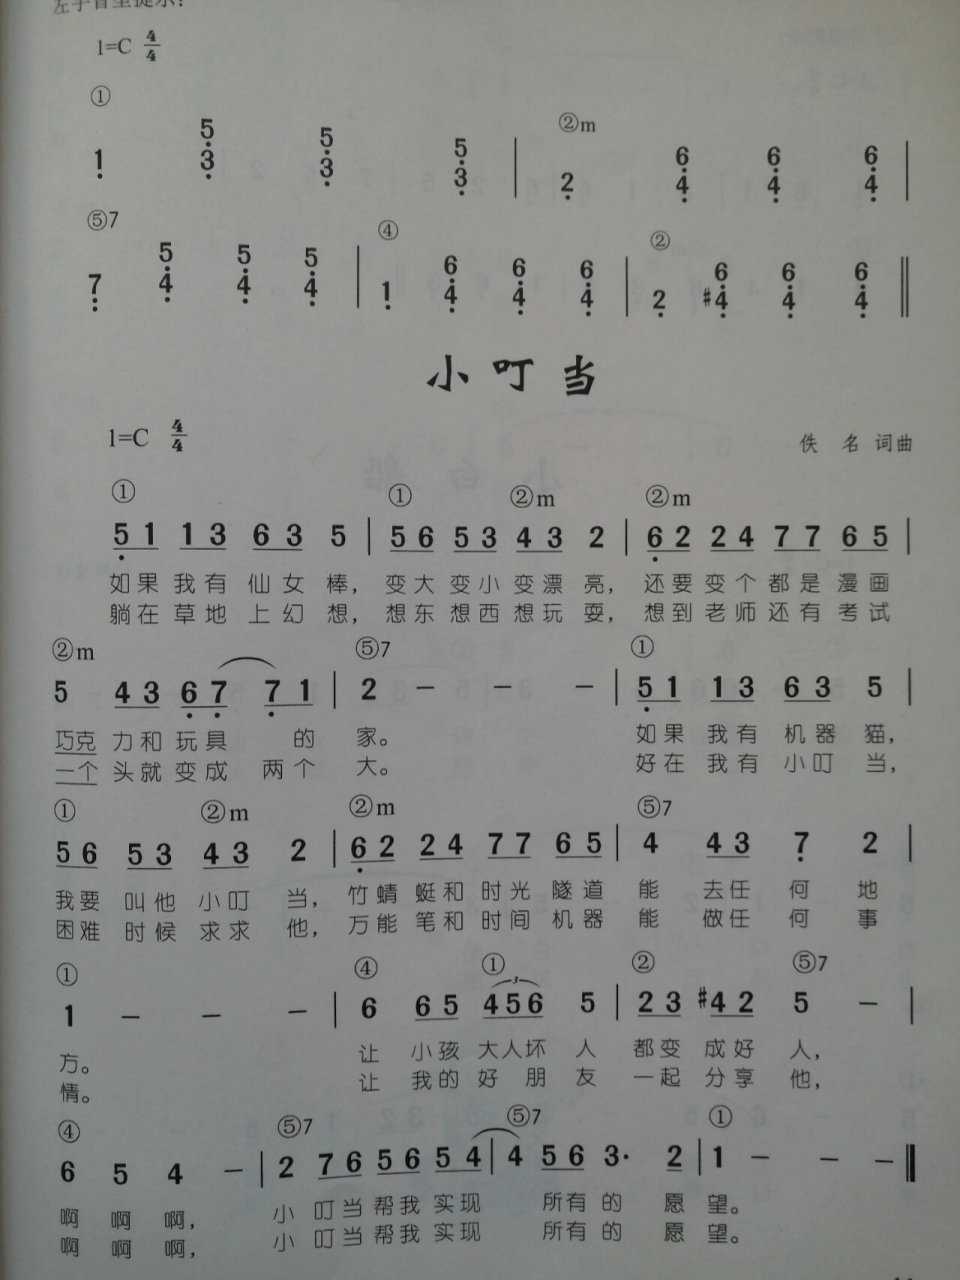 左手音型提示：
1=C 4/4
① ②m
1 5 3 5 3 5 3 | 2 6 4 6 4 6 4 |
⑤7 ④ ②
7 5 4 5 4 5 4 | 1 6 4 6 4 6 4 | 2 6 #4 6 4 6 4 ‖
小叮当
1=C 4/4 佚 名 词曲
① ① ②m ②m
5 1 1 3 6 3 5 | 5 6 5 3 4 3 2 | 6 2 2 4 7 7 6 5 |
如果 我有 仙女 棒, 变大 变小 变漂 亮, 还要 变个 都是 漫画
躺在 草地 上幻 想, 想东 想西 想玩 耍, 想到 老师 还有 考试
②m ⑤7 ①
5 4 3 6 7 7 1 | 2 – – – | 5 1 1 3 6 3 5 |
巧克 力和 玩具 的 家。 如果 我有 机器 猫,
一个 头就 变成 两个 大。 好在 我有 小叮 当,
① ②m ②m ⑤7
5 6 5 3 4 3 2 | 6 2 2 4 7 7 6 5 | 4 4 3 7 2 |
我要 叫他 小叮 当, 竹蜻 蜓和 时光 隧道 能 去任 何 地
困难 时候 求求 他, 万能 笔和 时间 机器 能 做任 何 事
① ④ ① ② ⑤7
1 – – – | 6 6 5 3 4 5 6 5 | 2 3 #4 2 5 – |
方。 让 小孩 大人坏 人 都变 成好 人,
情。 让 我的 好 朋 友 一起 分享 他,
④ ⑤7 ⑤7 ①
6 5 4 – | 2 7 6 5 6 5 4 | 4 5 6 3· 2 | 1 – – – ‖
啊 啊 啊, 小 叮当 帮我 实现 所有 的 愿 望。
啊 啊 啊, 小 叮当 帮我 实现 所有 的 愿 望。